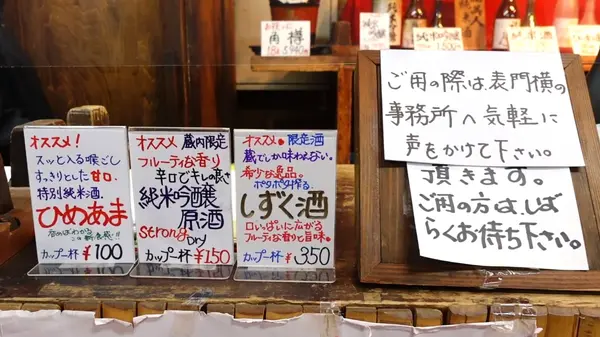 角樽
1.8ℓ 5,940円
ご用の際は、表門横の
事務所へ気軽に
声をかけて下さい。
頂きます。
ご用の方は、しば
らくお待ち下さい。
オススメ!
スッと入る喉ごし
すっきりとした甘口、
特別純米酒
ひめあま
カップ一杯 ¥100
オススメ 蔵内限定
フルーティな香り
辛口でキレの良さ
純米吟醸
原酒
strong
Dry
カップ一杯 ¥150
オススメ。限定酒
蔵でしか味わえない。
希少な逸品。
ポタポタ搾る
しずく酒
口いっぱいに広がる
フルーティな香りと旨味。
カップ一杯 ¥350